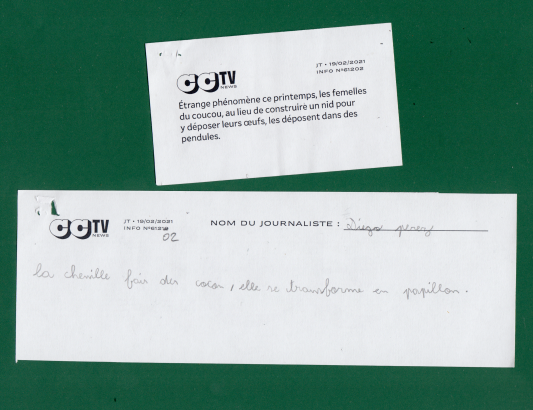 CCTV
NEWS
JT • 19/02/2021
INFO N°61202
Étrange phénomène ce printemps, les femelles
du coucou, au lieu de construire un nid pour
y déposer leurs œufs, les déposent dans des
pendules.
CCTV
NEWS
JT • 19/02/2021
INFO N°612
02
NOM DU JOURNALISTE : Diego perez
la chenille fait des cocon, elle se transforme en papillon.